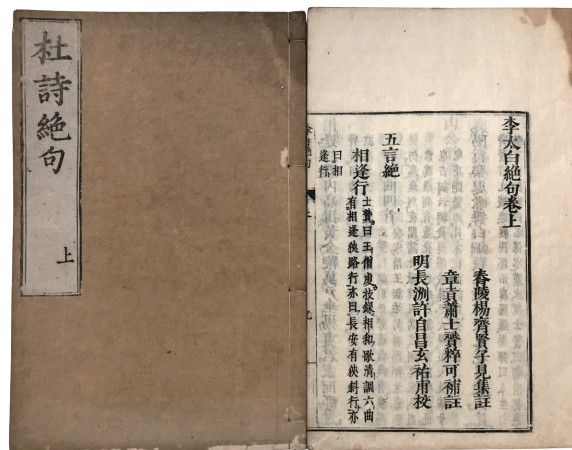 杜詩絶句
上
李太白絶句卷上
舂陵楊齊賢子見集註
章貢蕭士贇粹可補註
明長洲許自昌玄祐甫校
五言絶
相逢行
士贇曰王僧虔技録相和歌清調六曲
有相逢狹路行亦曰長安有狹斜行亦
曰相
逢行